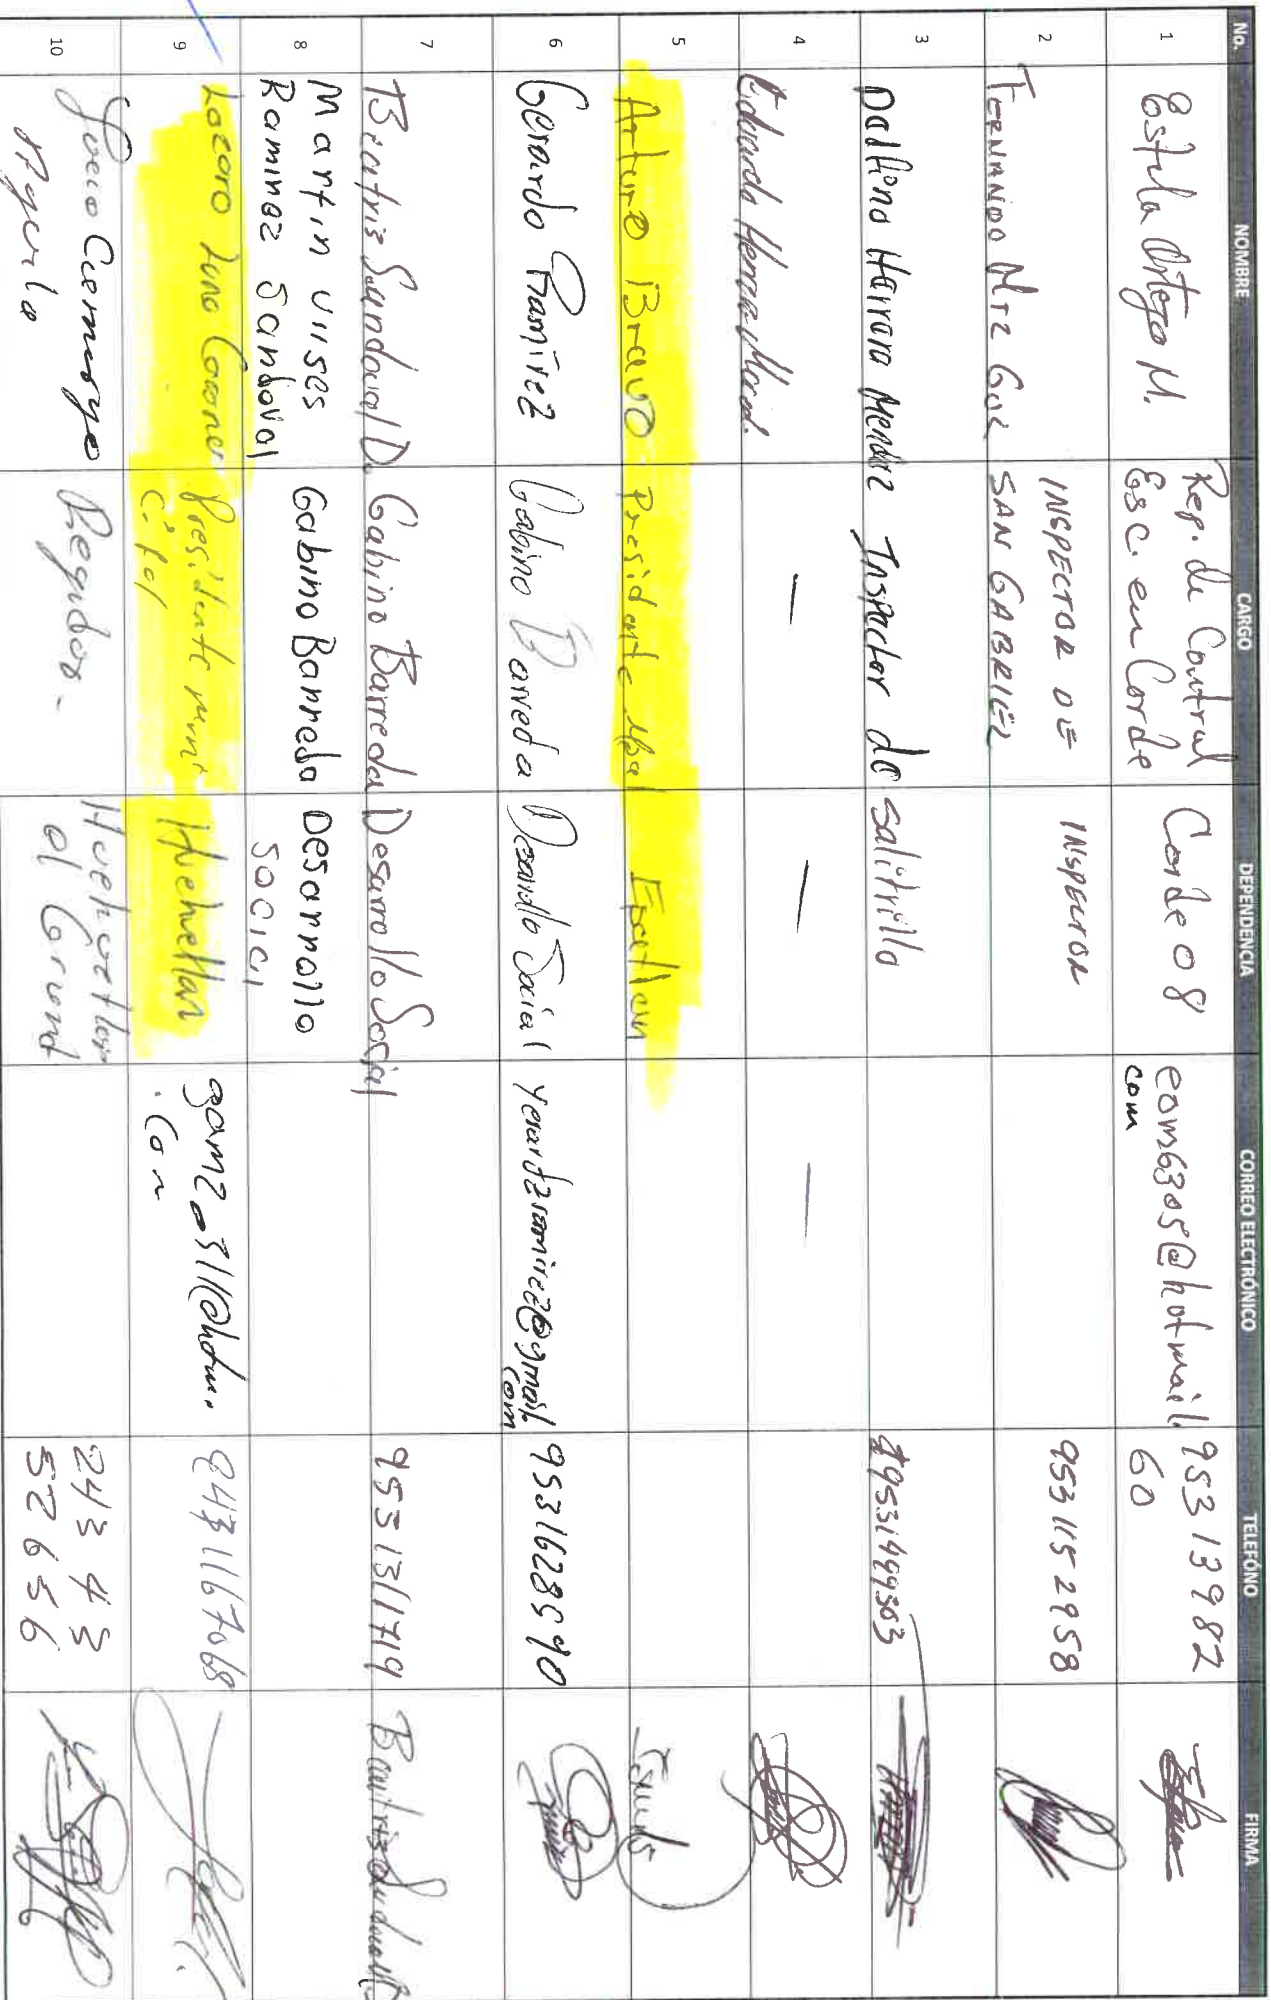 No. NOMBRE CARGO DEPENDENCIA CORREO ELECTRÓNICO TELEFÓNO FIRMA
1 Estela Ortega M. Rep. de Control Esc. en Corde Corde 08 eom6305@hotmail.com 953 13982 60
2 FERNANDO MTZ Guz INSPECTOR DE SAN GABRIEL INSPECTOR 953 115 2958
3 Herrera Mendez Inspector de salitrillo 9531499503
4 Eduardo Herrera — — —
5 Arturo Bravo Presidente Mpal
6 Gerardo Ramírez Gabino Barreda Desarrollo Social 9531628590
7 Beatris Sandoval D. Gabino Barreda Desarrollo Social 953 1311719 Beatris
8 Martin Ulises Raminez Sandoval Gabino Banneda Desannollo social
9 Presidente muni cipal Huehuetlan
10 Regidor. Huehuetlan el Grand 243 43 52656